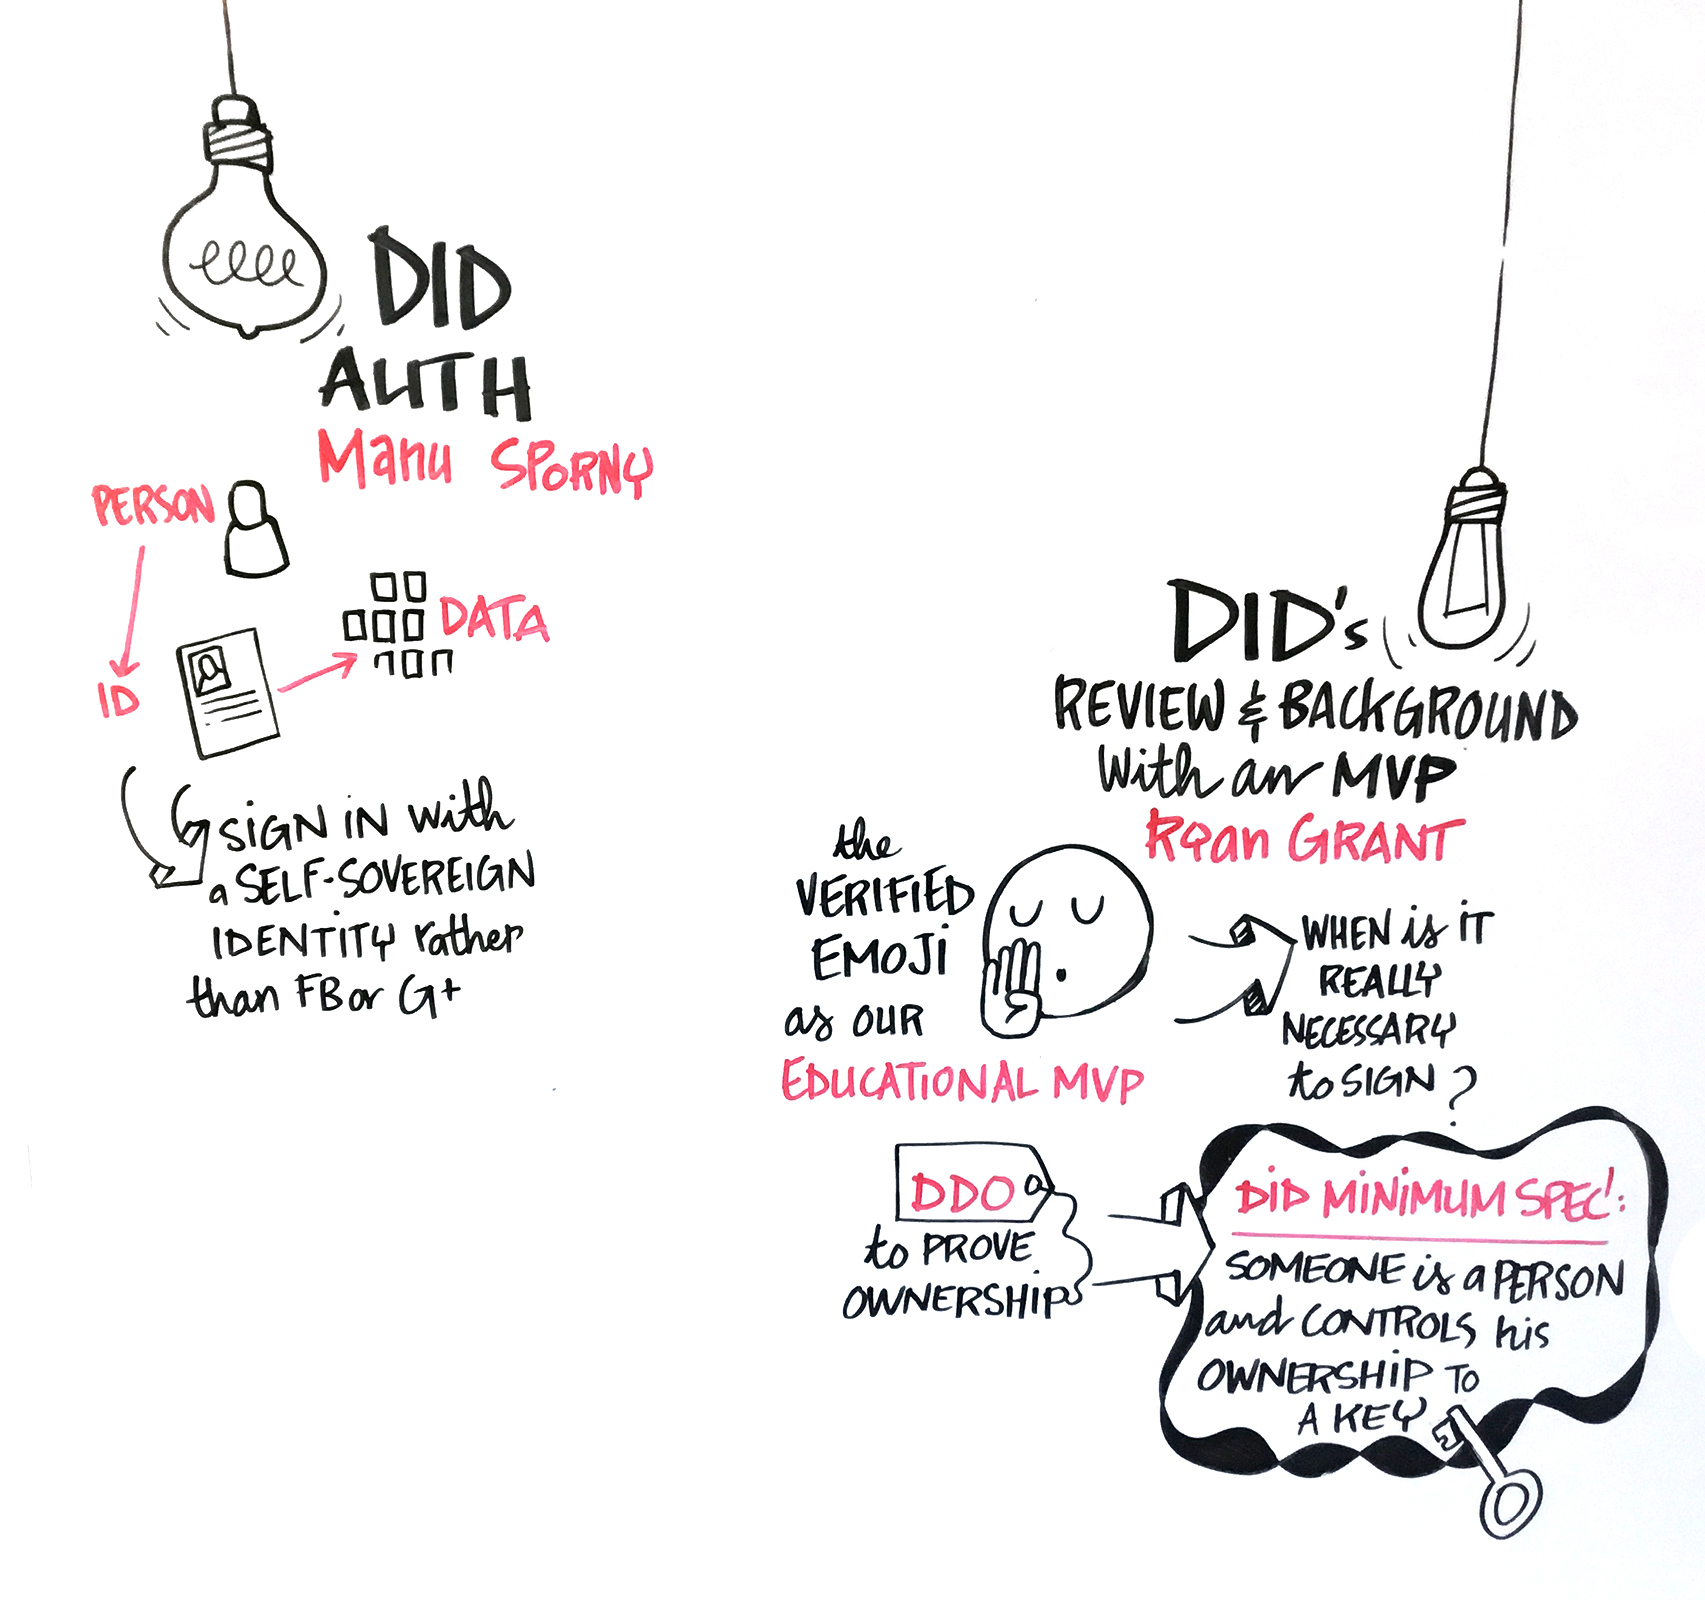 DID
AUTH
Manu SPORNY
PERSON
DATA
ID
SIGN IN with
a SELF-SOVEREIGN
IDENTITY rather
than FB or G+
DID's
REVIEW & BACKGROUND
With an MVP
Ryan GRANT
the
VERIFIED
EMOJI
as OUR
EDUCATIONAL MVP
WHEN is IT
REALLY
NECESSARY
to SIGN?
DDO
to PROVE
OWNERSHIP
DID MINIMUM SPEC':
SOMEONE is a PERSON
and CONTROLS his
OWNERSHIP TO
A KEY